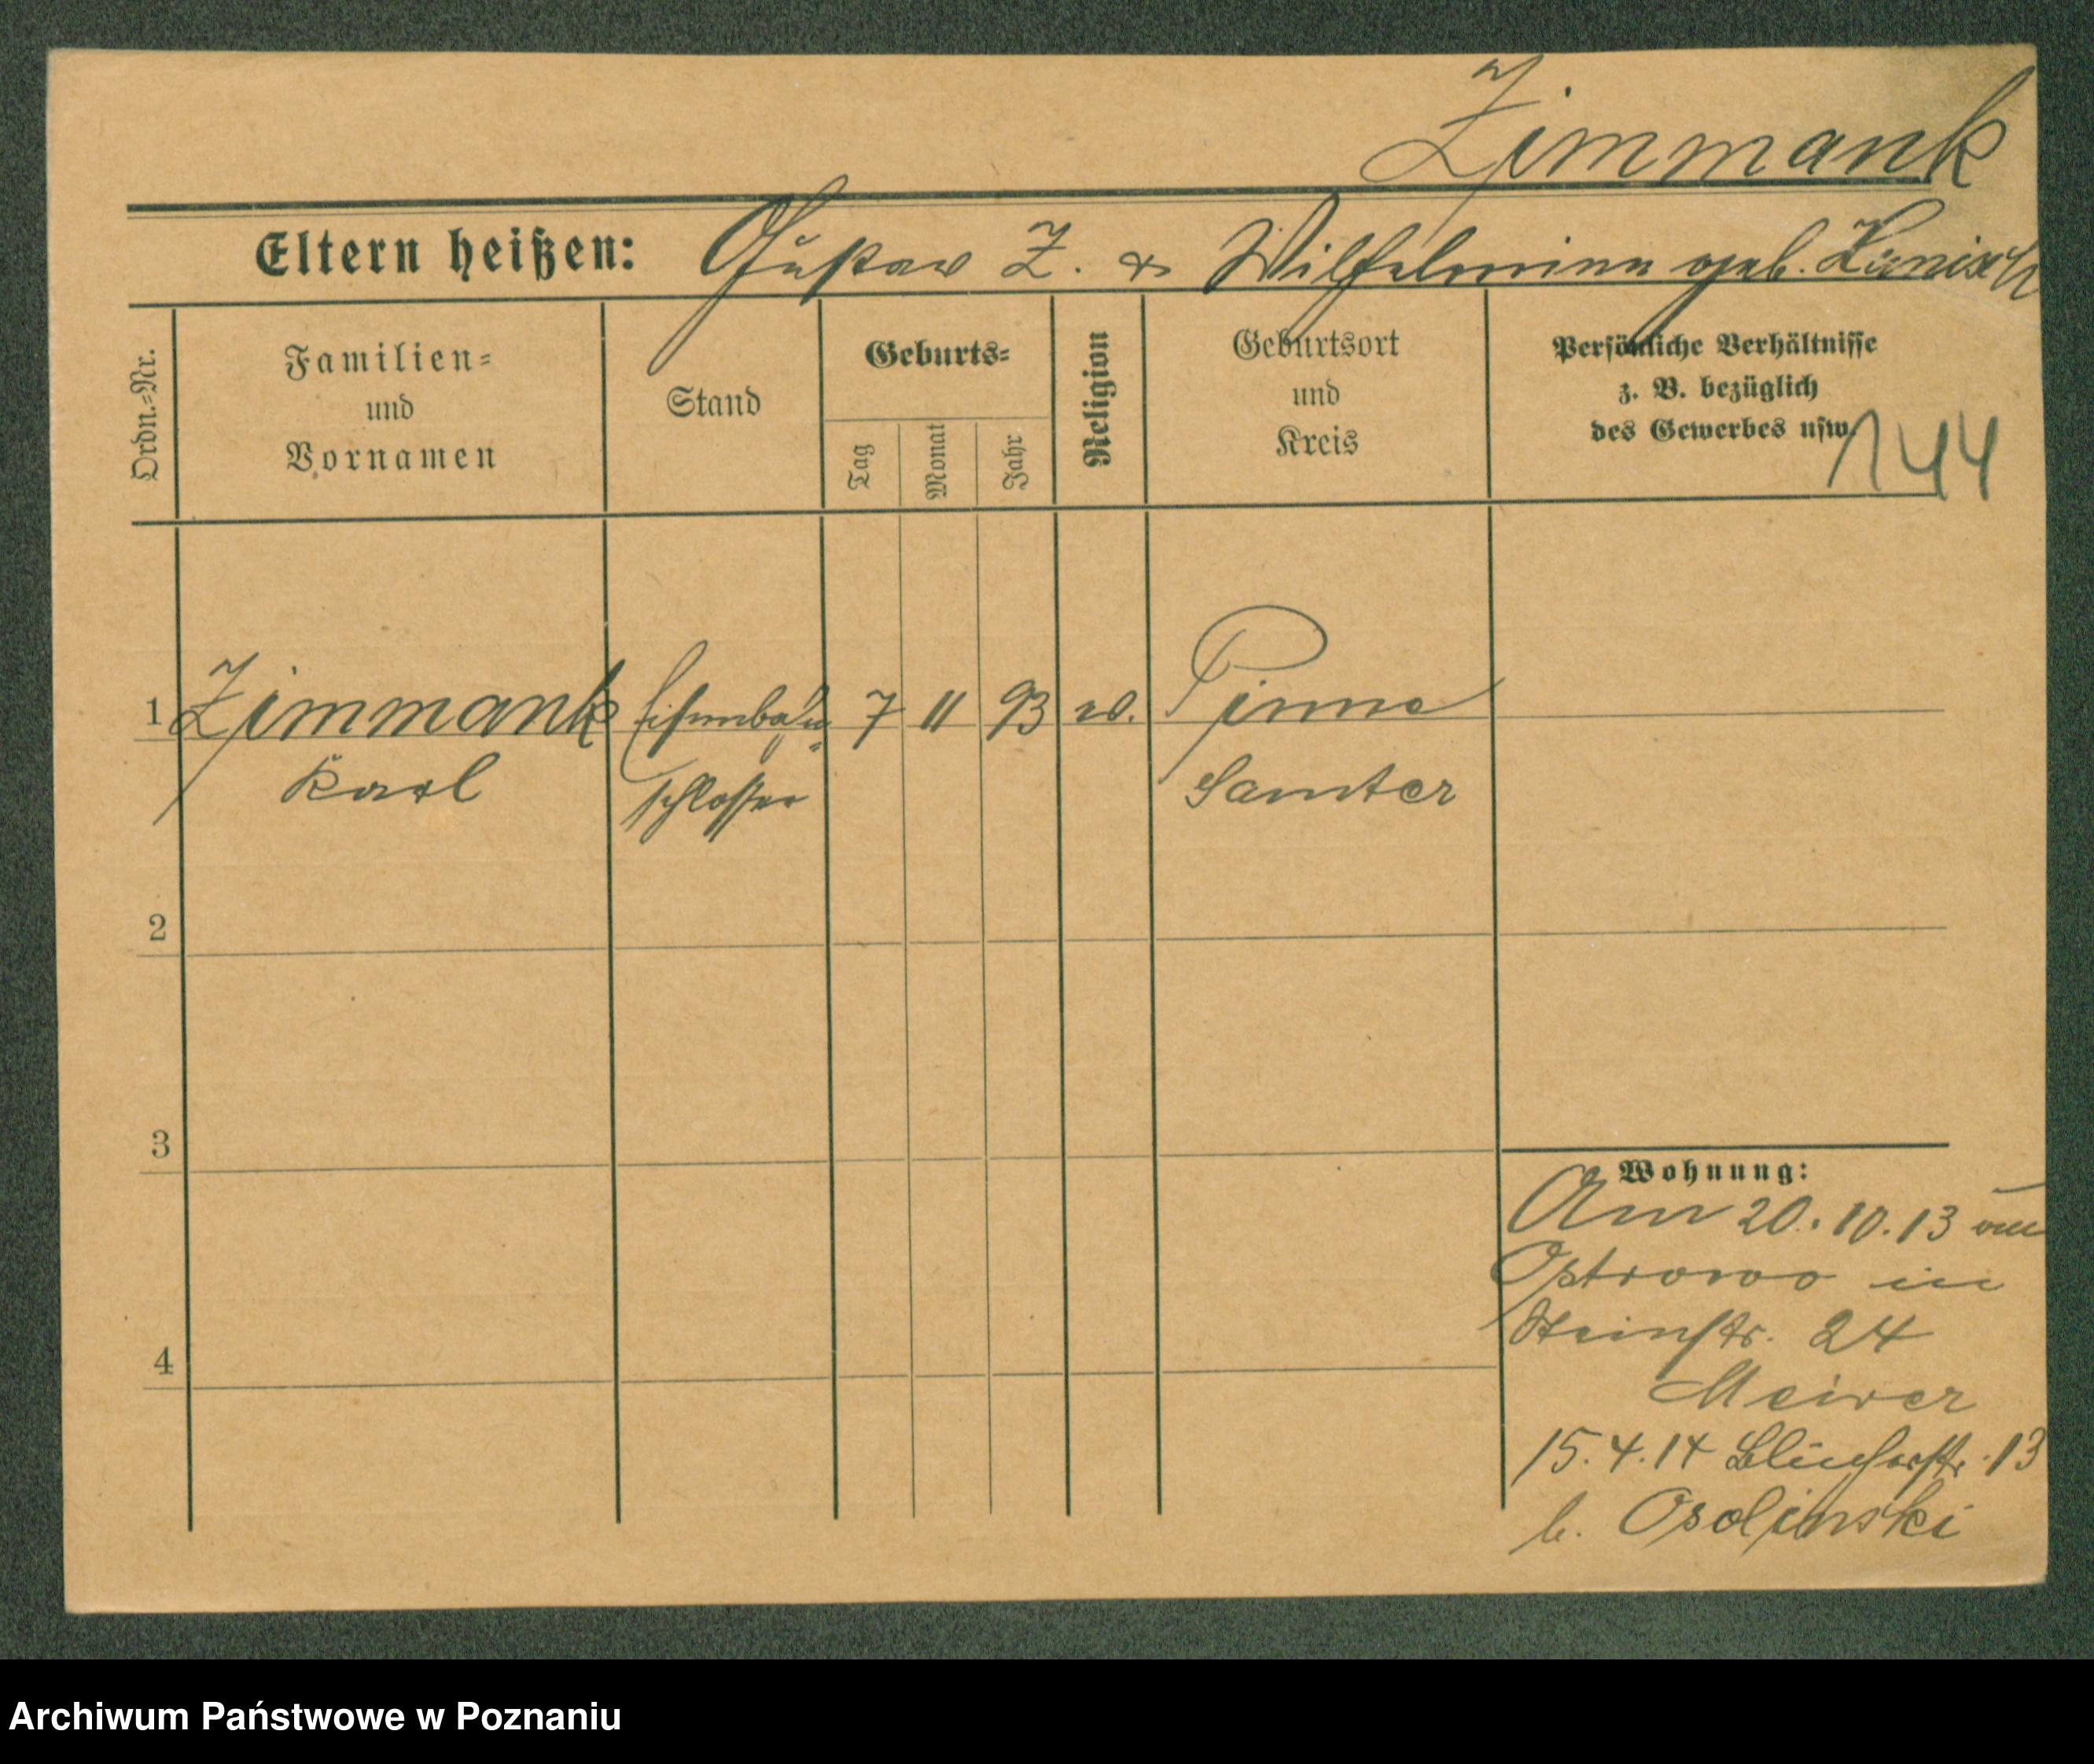 Zimmank
Eltern heißen: Gustav Z. & Wilhelmine geb. Hanisch
Ordn.-Nr.
Familien-
und
Vornamen
Stand
Geburts-
Tag
Monat
Jahr
Religion
Geburtsort
und
Kreis
Persönliche Verhältnisse
z. B. bezüglich
des Gewerbes usw.
144
1 Zimmank Eisenbahn 7 11 93 ev. Pinne
Karl schlosser Samter
2
3
4
Wohnung:
Am 20.10.13 von
Ostrowo in
Steinstr. 24
15.4.14 Blücherstr. 13
b. Osolinski
Archiwum Państwowe w Poznaniu